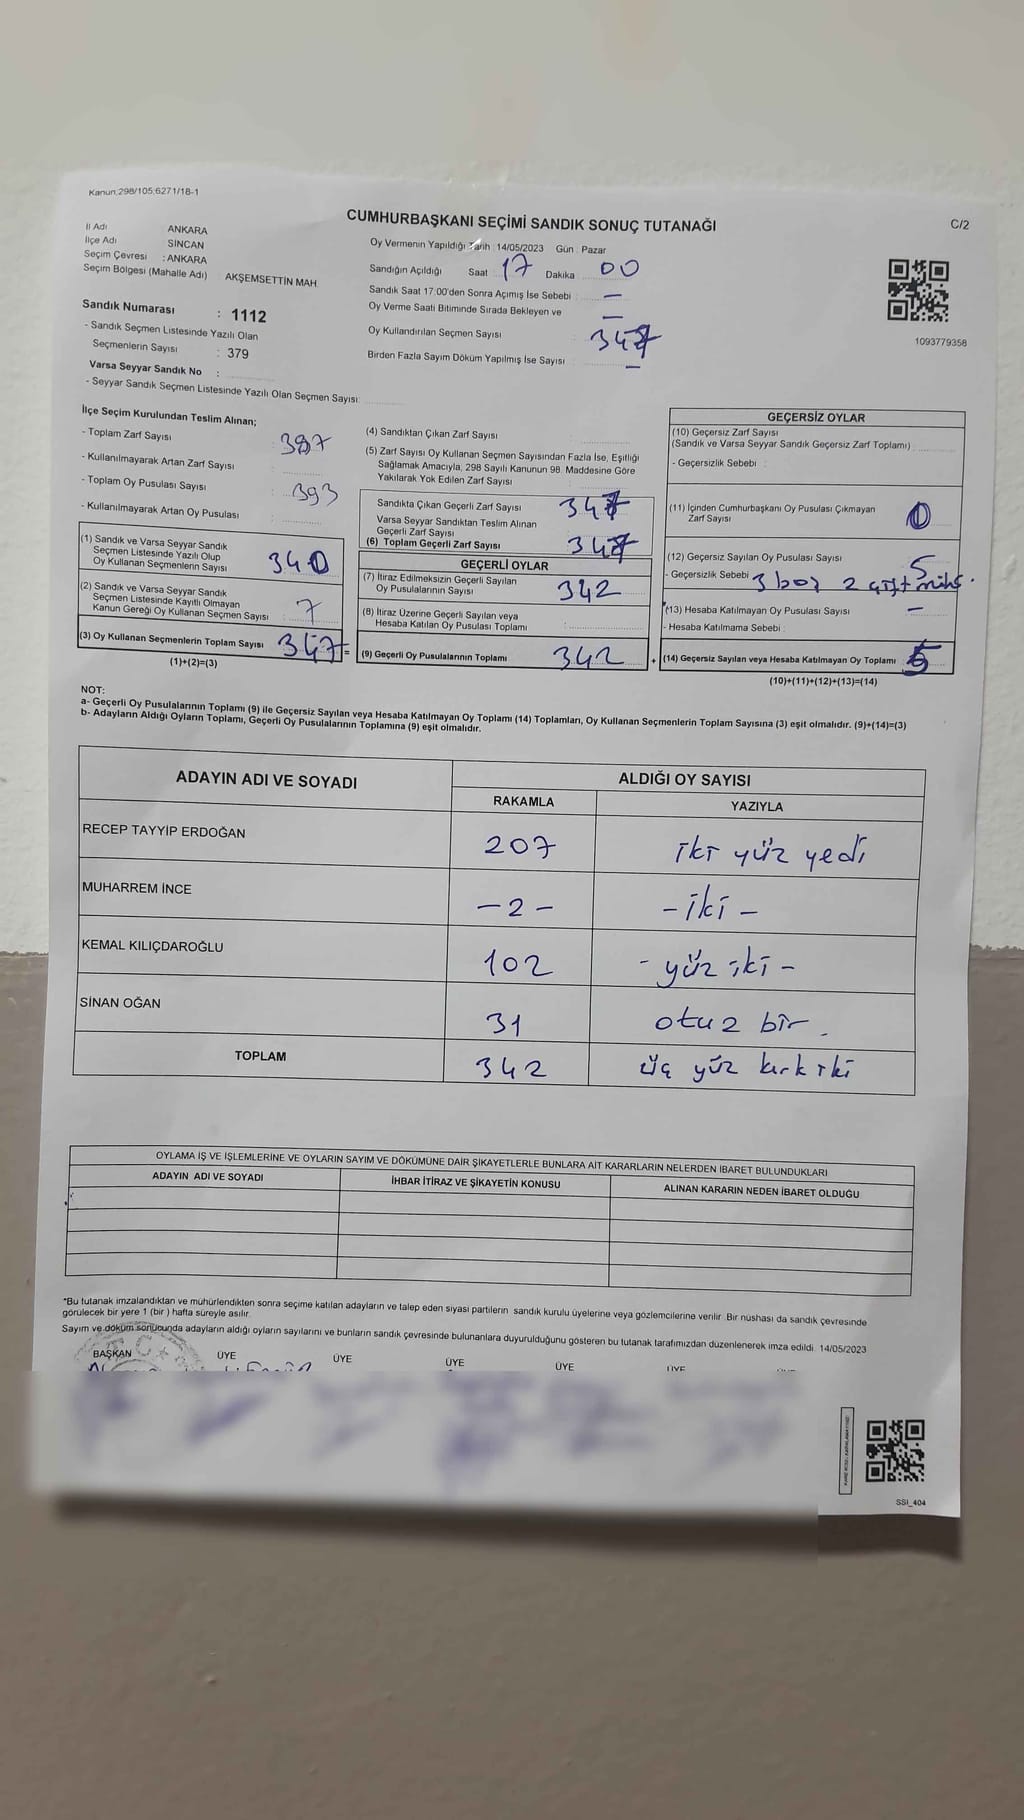 Kanun:298/105;6271/18-1
CUMHURBAŞKANI SEÇİMİ SANDIK SONUÇ TUTANAĞI
C/2
İl Adı ANKARA
İlçe Adı SİNCAN
Seçim Çevresi : ANKARA
Seçim Bölgesi (Mahalle Adı) : AKŞEMSETTİN MAH.
Sandık Numarası : 1112
- Sandık Seçmen Listesinde Yazılı Olan
Seçmenlerin Sayısı : 379
Varsa Seyyar Sandık No :
- Seyyar Sandık Seçmen Listesinde Yazılı Olan Seçmen Sayısı:
Oy Vermenin Yapıldığı Tarih : 14/05/2023 Gün : Pazar
Sandığın Açıldığı Saat 17 Dakika 00
Sandık Saat 17:00'den Sonra Açımış İse Sebebi : —
Oy Verme Saati Bitiminde Sırada Bekleyen ve —
Oy Kullandırılan Seçmen Sayısı 347
Birden Fazla Sayım Döküm Yapılmış İse Sayısı —
1093779358
İlçe Seçim Kurulundan Teslim Alınan;
- Toplam Zarf Sayısı 387
- Kullanılmayarak Artan Zarf Sayısı
- Toplam Oy Pusulası Sayısı : 393
- Kullanılmayarak Artan Oy Pusulası
(1) Sandık ve Varsa Seyyar Sandık
Seçmen Listesinde Yazılı Olup
Oy Kullanan Seçmenlerin Sayısı 340
(2) Sandık ve Varsa Seyyar Sandık
Seçmen Listesinde Kayıtlı Olmayan
Kanun Gereği Oy Kullanan Seçmen Sayısı : 7
(3) Oy Kullanan Seçmenlerin Toplam Sayısı 347 =
(1)+(2)=(3)
(4) Sandıktan Çıkan Zarf Sayısı
(5) Zarf Sayısı Oy Kullanan Seçmen Sayısından Fazla İse, Eşitliği
Sağlamak Amacıyla, 298 Sayılı Kanunun 98. Maddesine Göre
Yakılarak Yok Edilen Zarf Sayısı
Sandıkta Çıkan Geçerli Zarf Sayısı 347
Varsa Seyyar Sandıktan Teslim Alınan
Geçerli Zarf Sayısı
(6) Toplam Geçerli Zarf Sayısı 347
GEÇERLİ OYLAR
(7) İtiraz Edilmeksizin Geçerli Sayılan
Oy Pusulalarının Sayısı 342
(8) İtiraz Üzerine Geçerli Sayılan veya
Hesaba Katılan Oy Pusulası Toplamı
(9) Geçerli Oy Pusulalarının Toplamı 342 +
GEÇERSİZ OYLAR
(10) Geçersiz Zarf Sayısı
(Sandık ve Varsa Seyyar Sandık Geçersiz Zarf Toplamı)
- Geçersizlik Sebebi
(11) İçinden Cumhurbaşkanı Oy Pusulası Çıkmayan
Zarf Sayısı 0
(12) Geçersiz Sayılan Oy Pusulası Sayısı 5
- Geçersizlik Sebebi 3 boş 2 çift
(13) Hesaba Katılmayan Oy Pusulası Sayısı —
- Hesaba Katılmama Sebebi
(14) Geçersiz Sayılan veya Hesaba Katılmayan Oy Toplamı 5
(10)+(11)+(12)+(13)=(14)
NOT:
a- Geçerli Oy Pusulalarının Toplamı (9) ile Geçersiz Sayılan veya Hesaba Katılmayan Oy Toplamı (14) Toplamları, Oy Kullanan Seçmenlerin Toplam Sayısına (3) eşit olmalıdır. (9)+(14)=(3)
b- Adayların Aldığı Oyların Toplamı, Geçerli Oy Pusulalarının Toplamına (9) eşit olmalıdır.
ADAYIN ADI VE SOYADI ALDIĞI OY SAYISI
RAKAMLA YAZIYLA
RECEP TAYYİP ERDOĞAN 207 iki yüz yedi
MUHARREM İNCE – 2 – – iki –
KEMAL KILIÇDAROĞLU 102 – yüz iki –
SİNAN OĞAN 31 otuz bir .
TOPLAM 342 üç yüz kırk iki
OYLAMA İŞ VE İŞLEMLERİNE VE OYLARIN SAYIM VE DÖKÜMÜNE DAİR ŞİKAYETLERLE BUNLARA AİT KARARLARIN NELERDEN İBARET BULUNDUKLARI
ADAYIN ADI VE SOYADI İHBAR İTİRAZ VE ŞİKAYETİN KONUSU ALINAN KARARIN NEDEN İBARET OLDUĞU
*Bu tutanak imzalandıktan ve mühürlendikten sonra seçime katılan adayların ve talep eden siyasi partilerin sandık kurulu üyelerine veya gözlemcilerine verilir. Bir nüshası da sandık çevresinde
görülecek bir yere 1 (bir ) hafta süreyle asılır.
Sayım ve döküm sonucunda adayların aldığı oyların sayılarını ve bunların sandık çevresinde bulunanlara duyurulduğunu gösteren bu tutanak tarafımızdan düzenlenerek imza edildi. 14/05/2023
BAŞKAN ÜYE ÜYE ÜYE ÜYE ÜYE
SSI_404